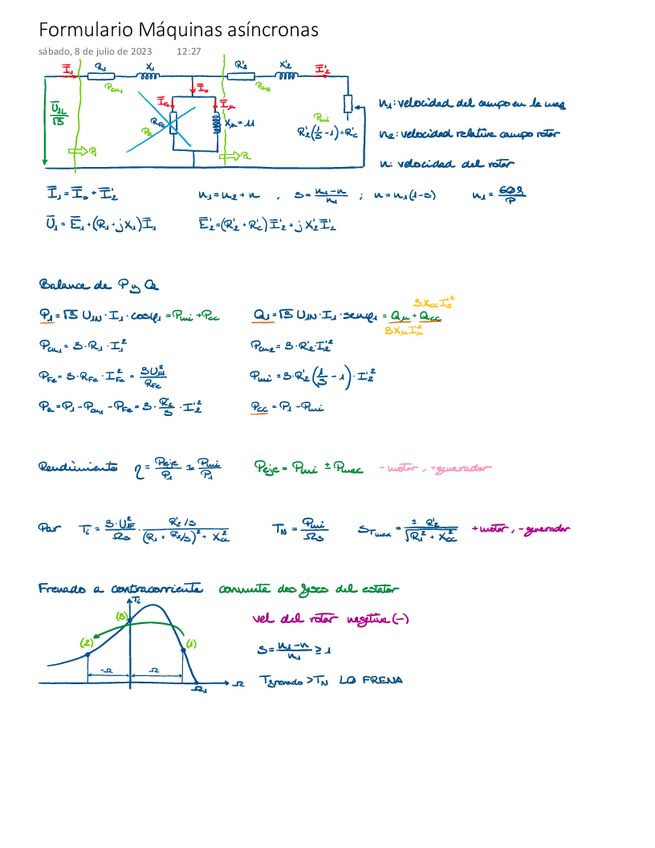 Formulario Máquinas asíncronas
sábado, 8 de julio de 2023 12:27
I̅₁ R₁ X₁ R₂' X₂' I̅₂'
Pcu₁ I̅₀ Pcu₂
U̅₁L/√3 RFe Xμ Pmi
R₂'(1/S - 1) = Rc'
P₁
n₁: velocidad del campo en la maq
n₂: velocidad relativa campo rotor
n: velocidad del rotor
I̅₁ = I̅₀ + I̅₂' n₁ = n₂ + n , S = (n₁-n)/n₁ ; n = n₁(1-S) n₁ = 60f/P
U̅₁ = E̅₁ + (R₁ + jX₁) I̅₁ E̅₂' = (R₂' + Rc') I̅₂' + j X₂' I̅₂'
Balance de P y Q
3Xcc I₂'²
P₁ = √3 U₁N · I₁ · cosφ₁ = Pmi + Pcc Q₁ = √3 U₁N · I₁ · senφ₁ = Qμ + Qcc
3Xμ Iμ²
Pcu₁ = 3 · R₁ · I₁² Pcu₂ = 3 · R₂' · I₂'²
PFe = 3 · RFe · IFe² = 3U₁N²/RFe Pmi = 3 · R₂'(1/S - 1) · I₂'²
Pa = P₁ - Pcu₁ - PFe = 3 · R₂'/S · I₂'² Pcc = P₁ - Pmi
Rendimiento η = Peje/P₁ ≃ Pmi/P₁ Peje = Pmi ± Pmec - motor, + generador
Par Ti = 3·U₁F²/Ωs · (R₂'/S)/((R₁ + R₂'/S)² + Xcc²) TN = Pmi/Ωs STmax = ± R₂'/√(R₁² + Xcc²) + motor, - generador
Frenado a contracorriente conmuta dos fases del estator
Ti
(3) vel del rotor negativa (-)
(2) (1)
S = (n₁-n)/n₁ ≥ 1
-Ω Ω
Ω₁ Ω Tfrenado > TN LO FRENA